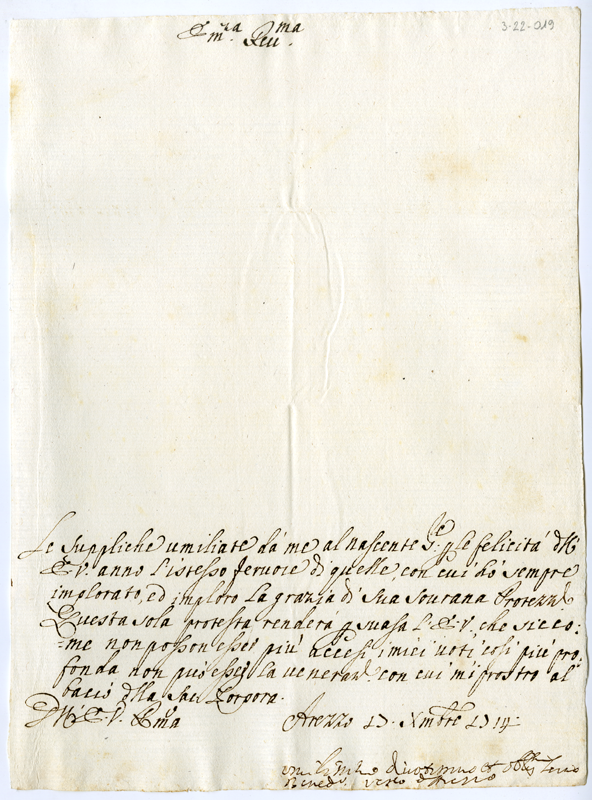 3-22-019
Em.ᵃ Reu.ᵐᵃ
Le suppliche umiliate da me al nascente Gᵉ: p le felicità dll'
E.V. anno l'istesso feruore di quelle, con cui hò sempre
implorato, ed imploro la grazia di Sua Sourana Protezzᵉ
Questa sola protesta renderà p suasa l'E.V., che sicco:
=me non posson esser più accesi i miei uoti, così più pro
fonda non può esser la venerazᵉ con cui mi prostro al
bacio dlla Sac. Porpora.
Dll' E.V. Rma
Arezzo 17. Xmbre 1714.
umilissimo diuotissimo et obbl. seruo
Bened. Vesc. d'Arezzo